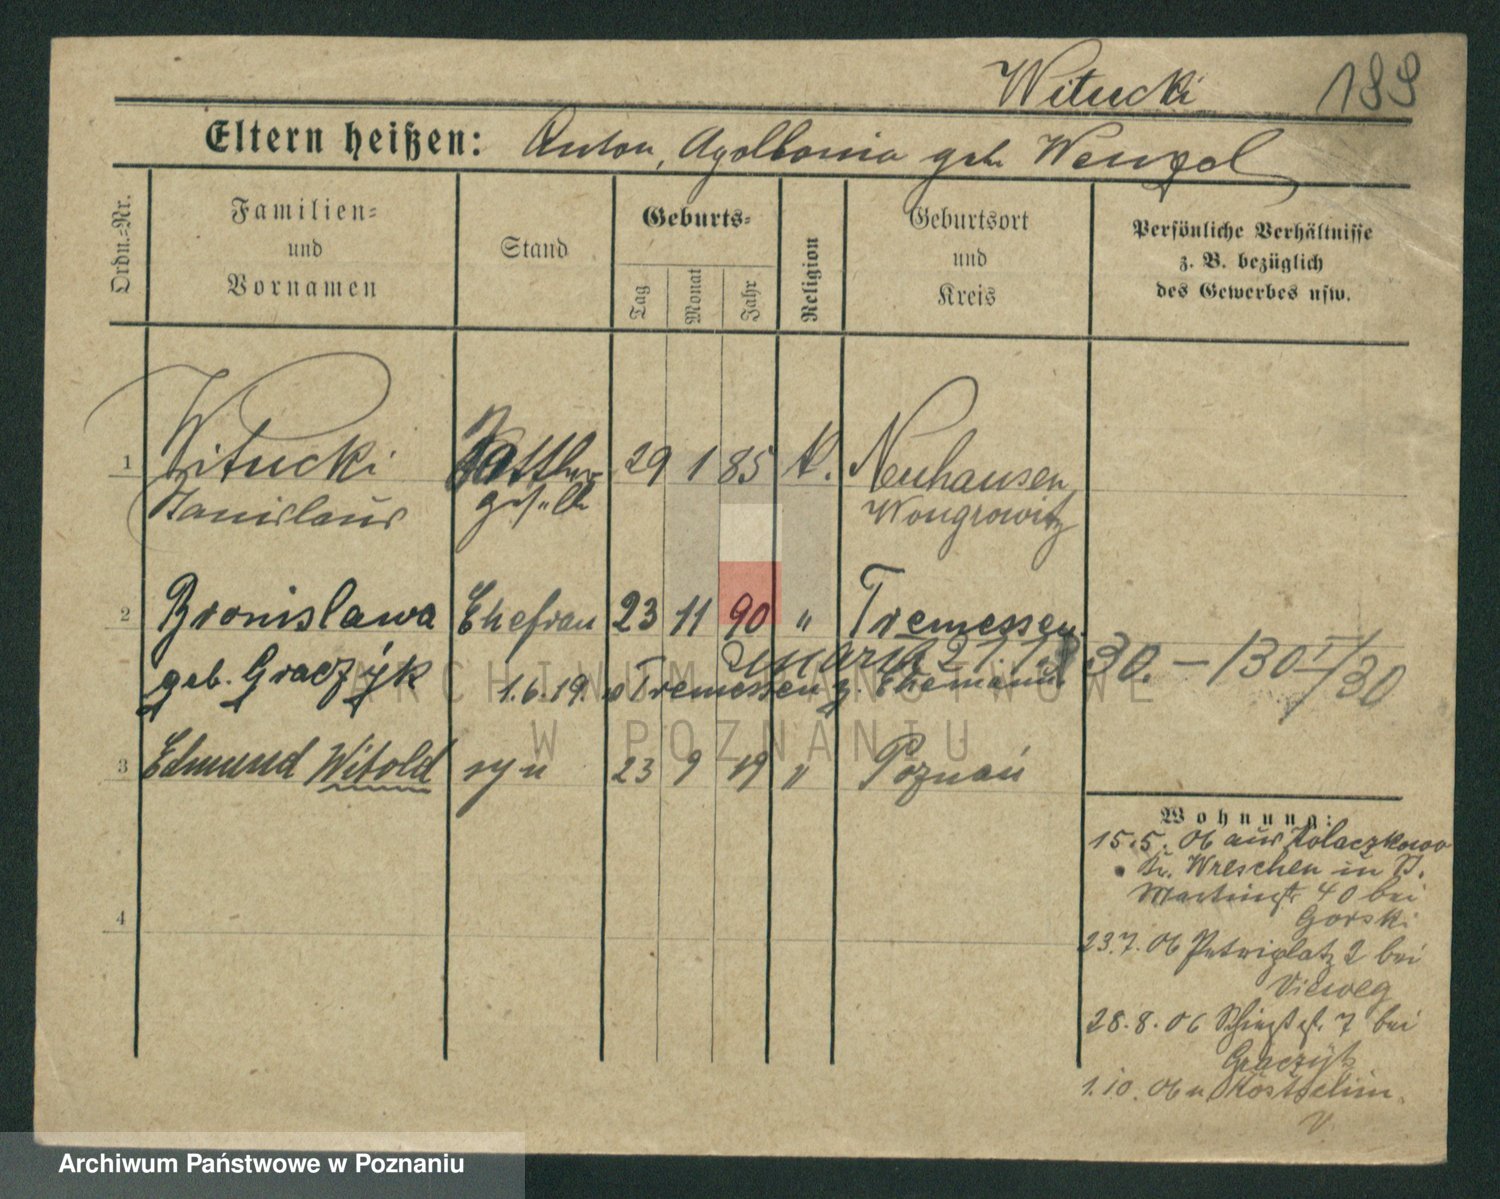 Witucki 199
Eltern heißen: Anton, Apollonia geb. Wenzel
Ordn.-Nr.
Familien-
und
Vornamen
Stand
Geburts-
Tag
Monat
Jahr
Religion
Geburtsort
und
Kreis
Persönliche Verhältnisse
z. B. bezüglich
des Gewerbes usw.
1 Witucki Sattler 29 1 85 k. Neuhausen
Stanislaus geselle Wongrowitz
2 Bronislawa Ehefrau 23 11 90 " Tremessen
geb. Graczyk 1.6.19. Tremessen z. Ehemann
30. – 130 /30
3 Edmund Witold syn 23 9 19 " Poznań
4
Wohnung:
15.5.06 aus Kolaczkowo
Kr. Wreschen in St.
Martinstr 40 bei
Gorski
23.7.06 Petriplatz 2 bei
Vieweg
28.8.06 7 bei
Graczyk
1.10.06 n Kostschin
V.
ARCHIWUM PAŃSTWOWE
W POZNANIU
Archiwum Państwowe w Poznaniu